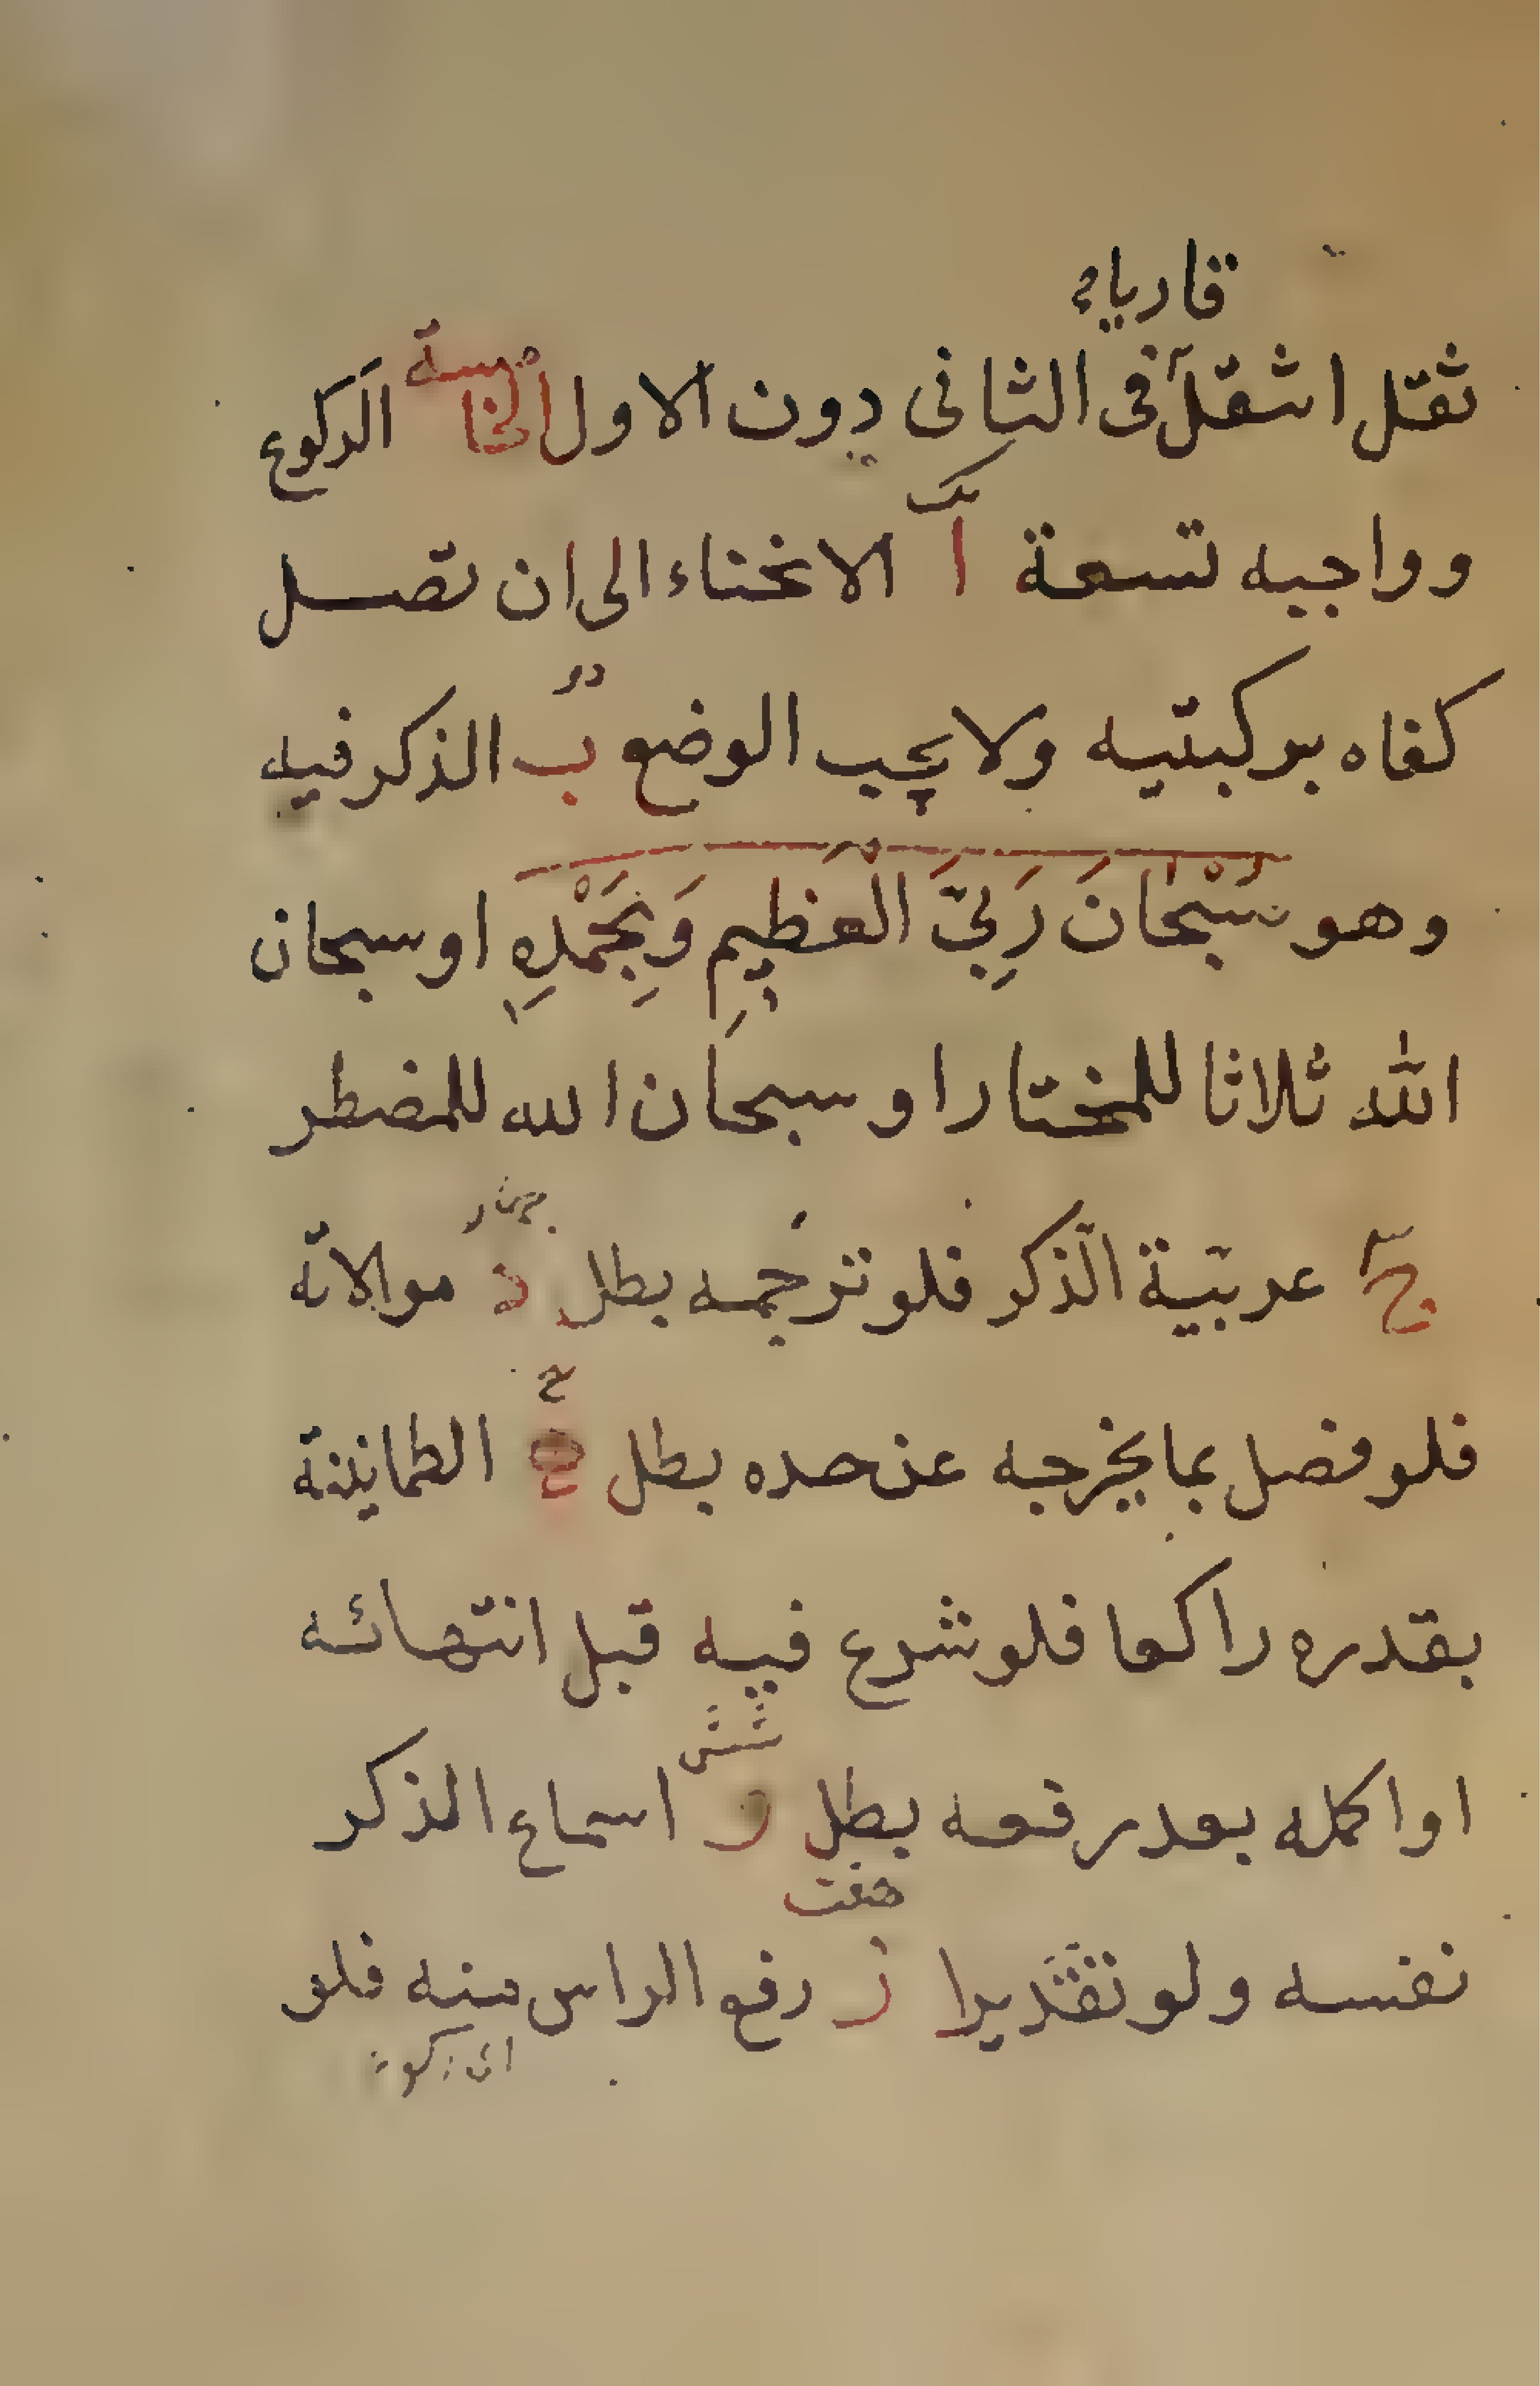 ثقل اشقل فى الثانى دون الاول الخامسة الركوع
وواجبه تسعة ا الانحناء الى ان تصل
يک
كفاه بركبتيه ولا يجب الوضع ب الذكر فيه
دو
وهو سُبْحَانَ رَبِّىَ الْعَظِيمِ وَبِحَمْدِهِ او سبحان
الله ثلاثا للمختار او سبحان الله للمضطر
ج عربيّة الذكر فلو ترجمه بطل د موالاته
چهار
فلو فصل بما يخرجه عن حده بطل ه الطمانينة
بقدره راكعا فلو شرع فيه قبل انتهائه
شش
او اكمله بعد رفعه بطل و اسماع الذكر
هفت
نفسه ولو تقديرا ز رفع الراس منه فلو